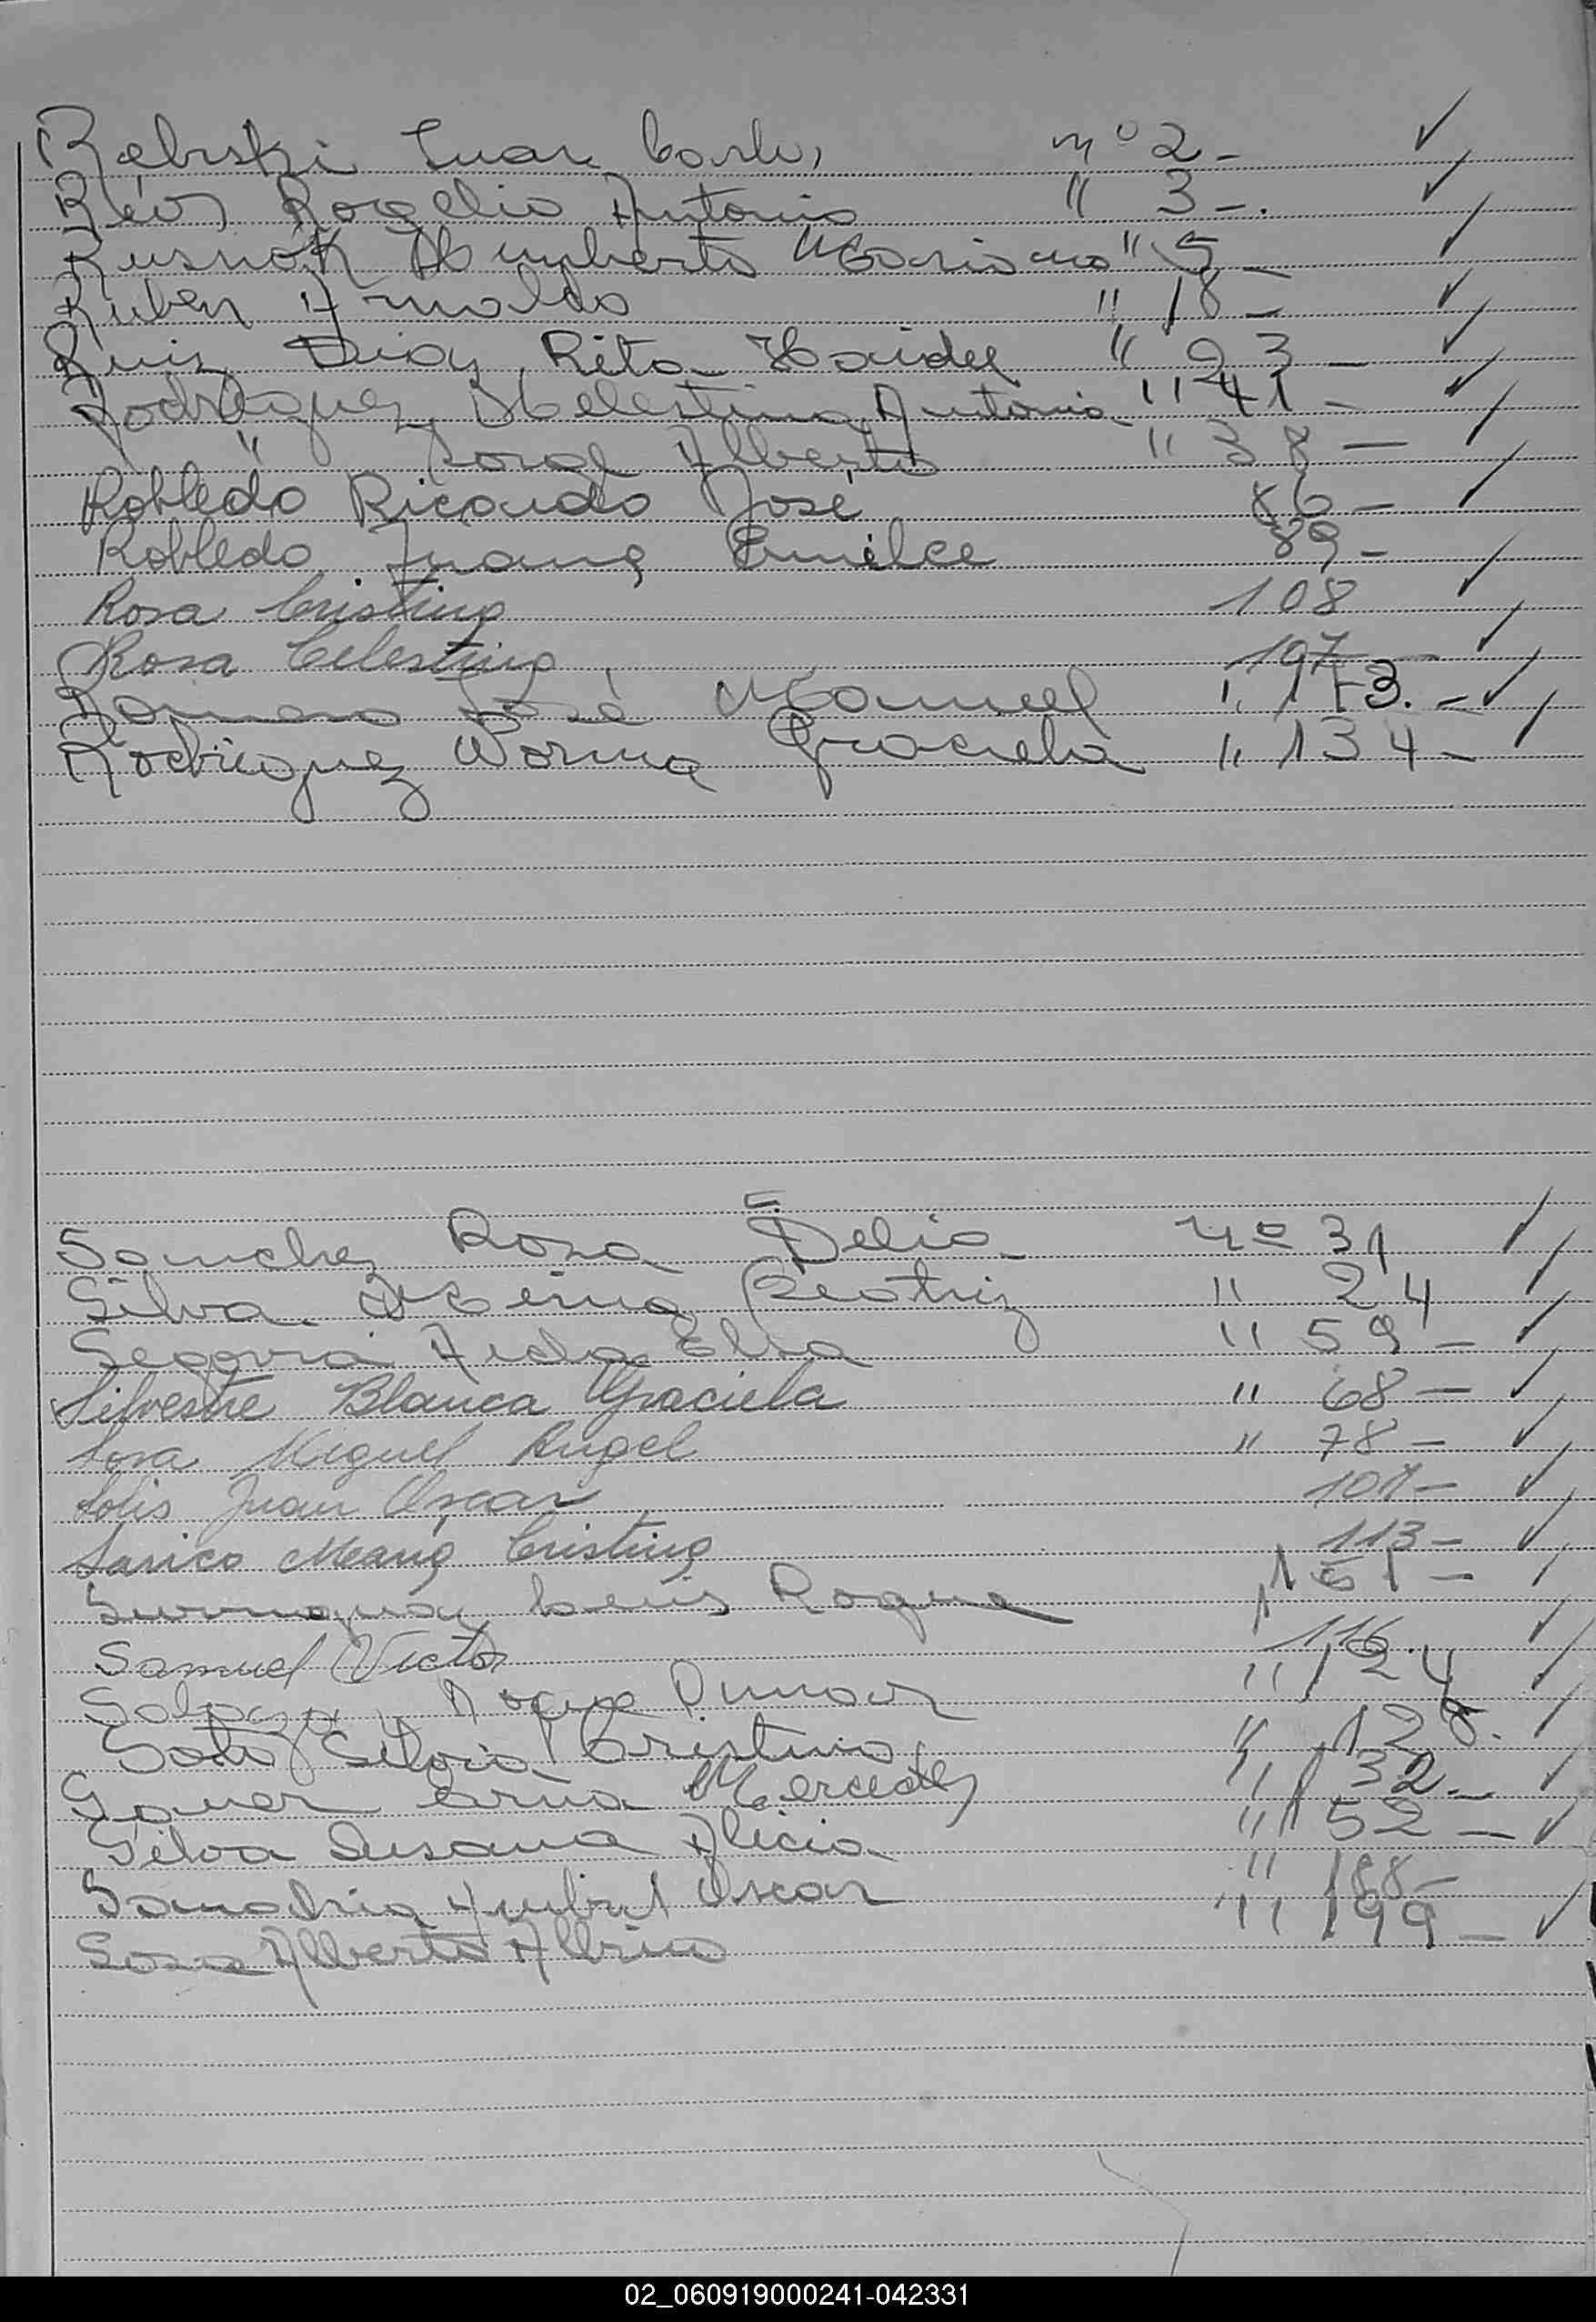 Rébrski Juan Carlos nº 2 - ✓
Ríos Rogelio Antonio " 3 - . ✓
Rusnok Humberto Mariano " 5 - ✓
Ruben Arnoldo " 18 - ✓
Ruiz Diaz Rita Haidee " 23 - ✓
Rodriguez Celestino Antonio " 41 - ✓
" Jorge Alberto " 38 - ✓
Robledo Ricardo José 86 - ✓
Robledo Juana Emilce 89 -
Rosa Cristina 108 ✓
Rosa Celestina 107 - ✓
Romero José Manuel " 173. - ✓
Rodriguez Norma Graciela " 134 - ✓
S.
Sanchez Rosa Delia nº 31 ✓
Silva Beatriz " 24 ✓
Segovia Aida Elsa " 59 - ✓
Silvestre Blanca Graciela " 68 - ✓
Sosa Miguel Angel " 78 - ✓
Solis Juan Oscar 101 - ✓
Sarico María Cristina 113 - ✓
Luis Roque 161 - ✓
Samuel Victor 116. ✓
Roque " 124 ✓
Soto Silvia Cristina " 128. ✓
Mercedes " 132 - ✓
Silva Susana Alicia " 152 - ✓
Oscar " 188 -
Sosa Alberto " 199 - ✓
02_060919000241-042331